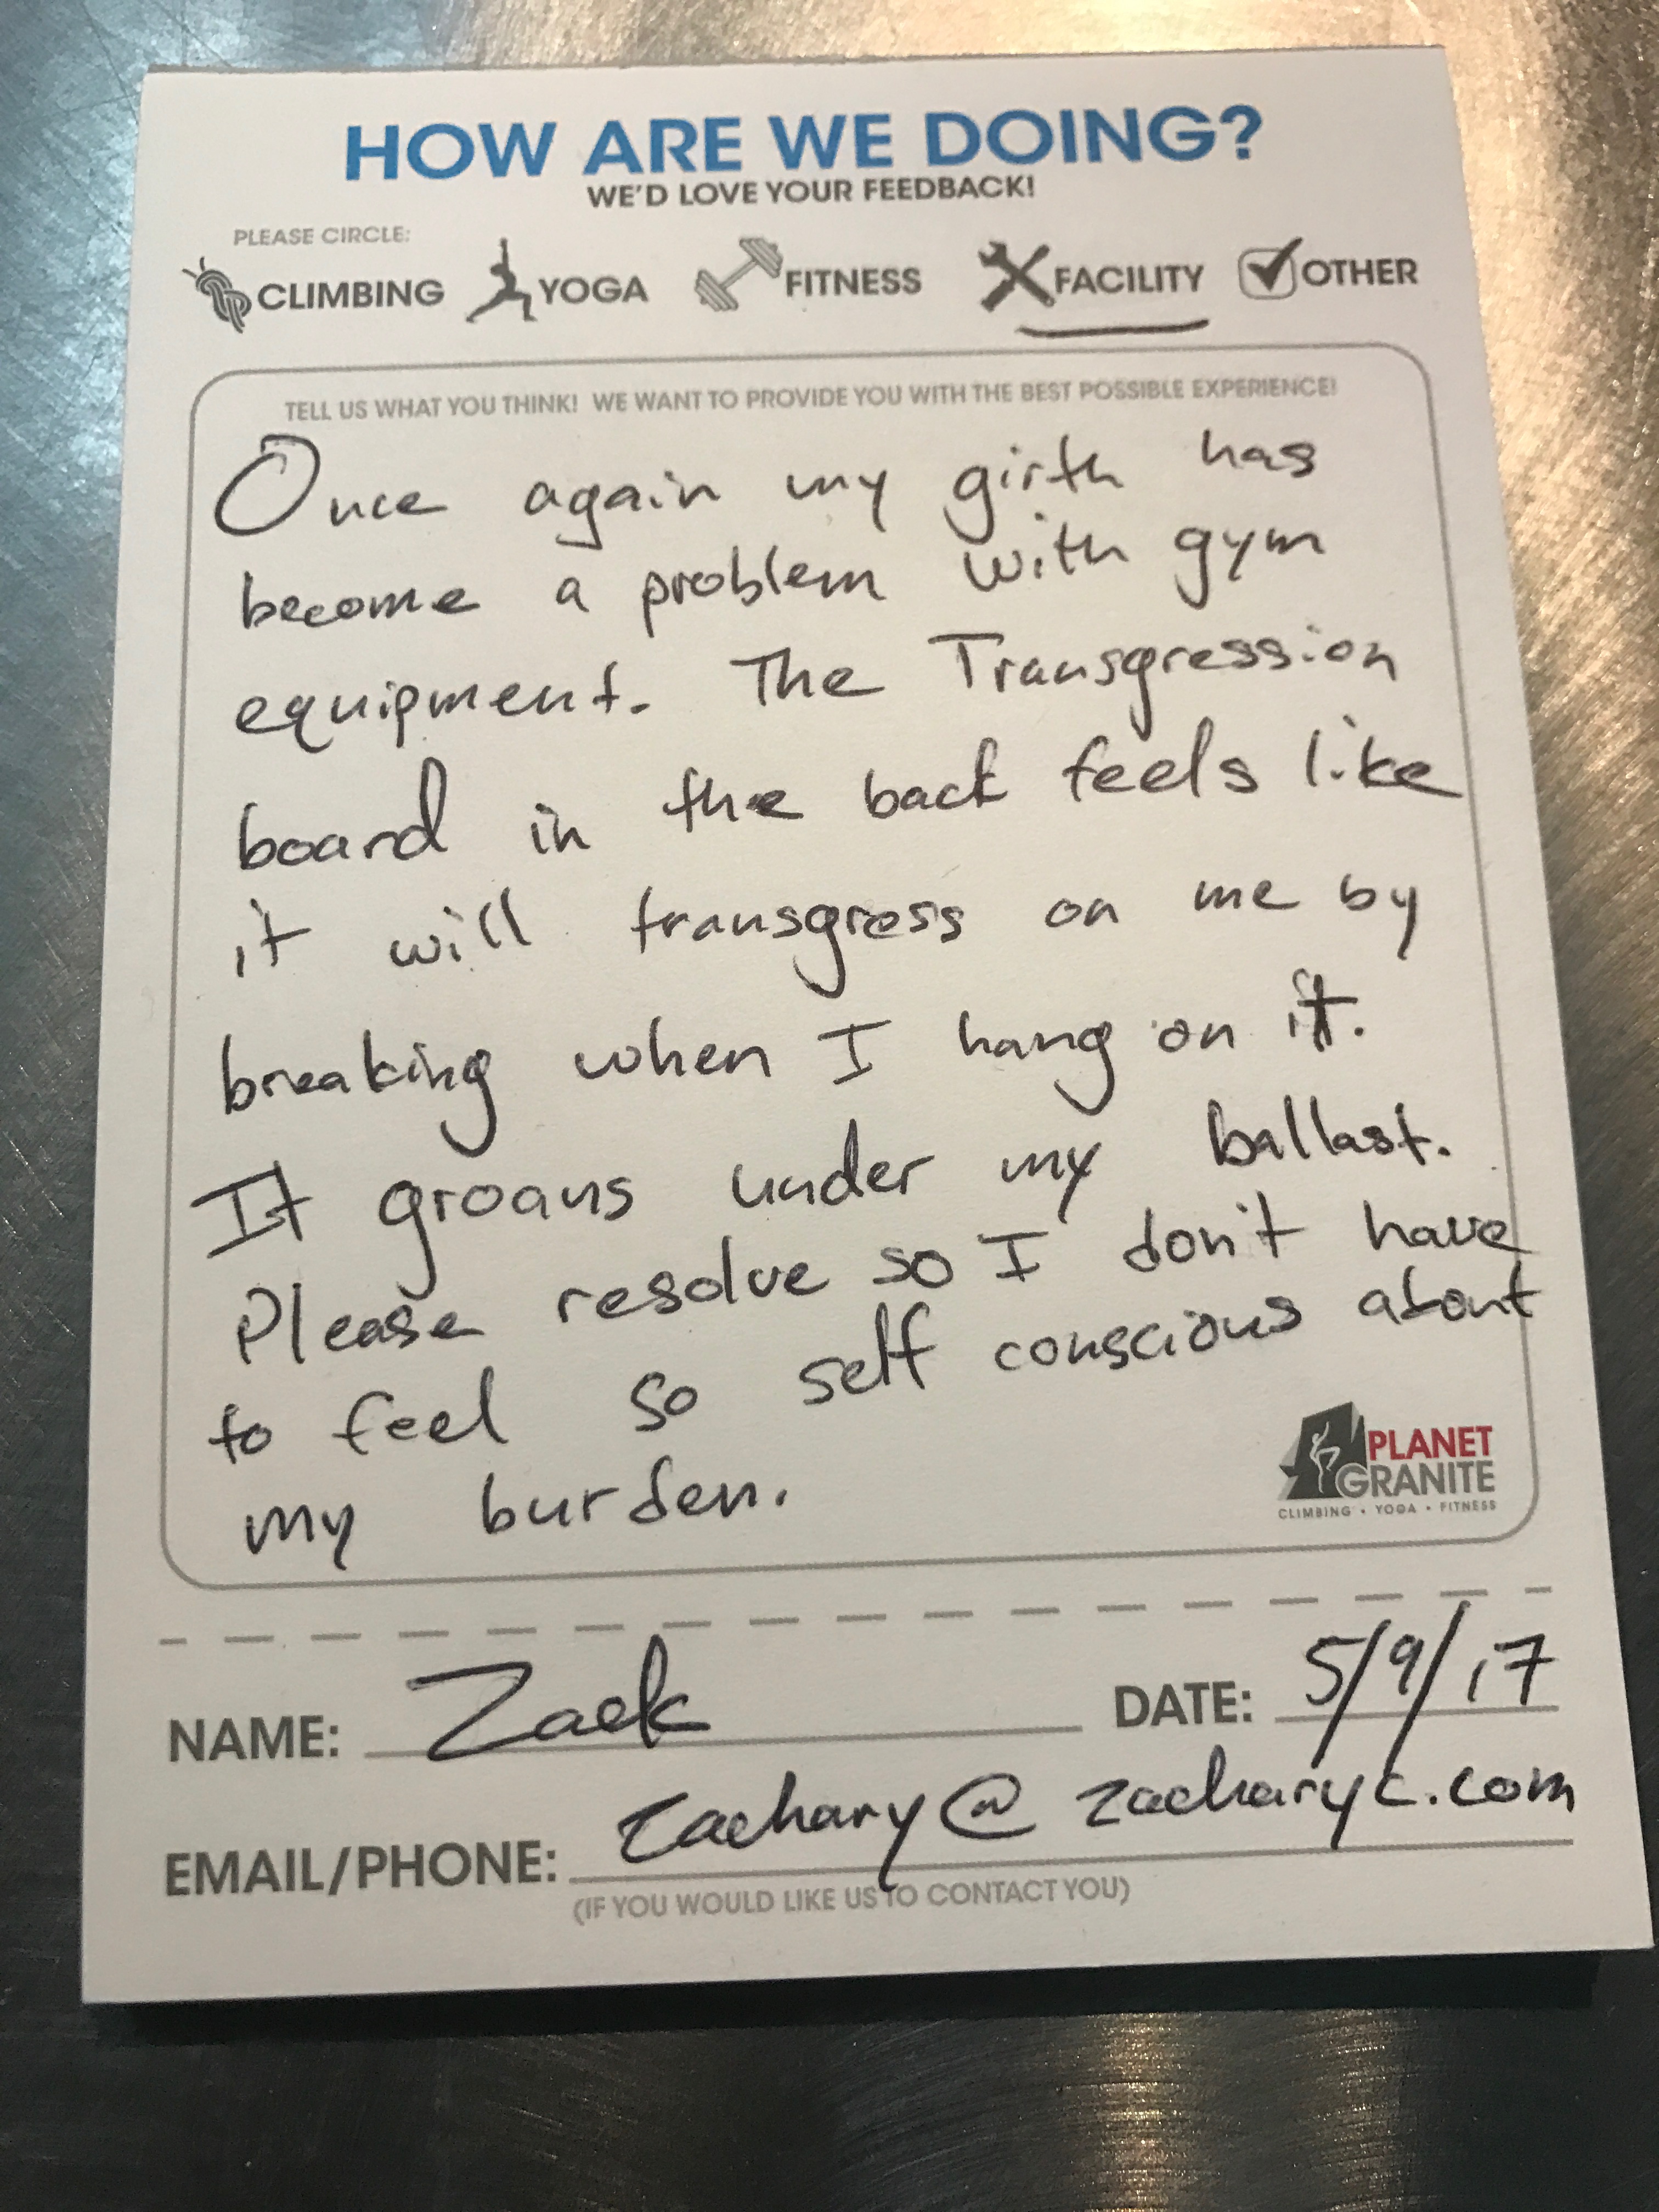 HOW ARE WE DOING?
WE'D LOVE YOUR FEEDBACK!
PLEASE CIRCLE:
CLIMBING YOGA FITNESS FACILITY OTHER
TELL US WHAT YOU THINK! WE WANT TO PROVIDE YOU WITH THE BEST POSSIBLE EXPERIENCE!
Once again my girth has
become a problem with gym
equipment. The Transgression
board in the back feels like
it will transgress on me by
breaking when I hang on it.
It groans under my ballast.
Please resolve so I don't have
to feel so self conscious about
my burden.
PLANET
GRANITE
CLIMBING • YOGA • FITNESS
NAME: Zack DATE: 5/9/17
EMAIL/PHONE: zachary@zacharyc.com
(IF YOU WOULD LIKE US TO CONTACT YOU)